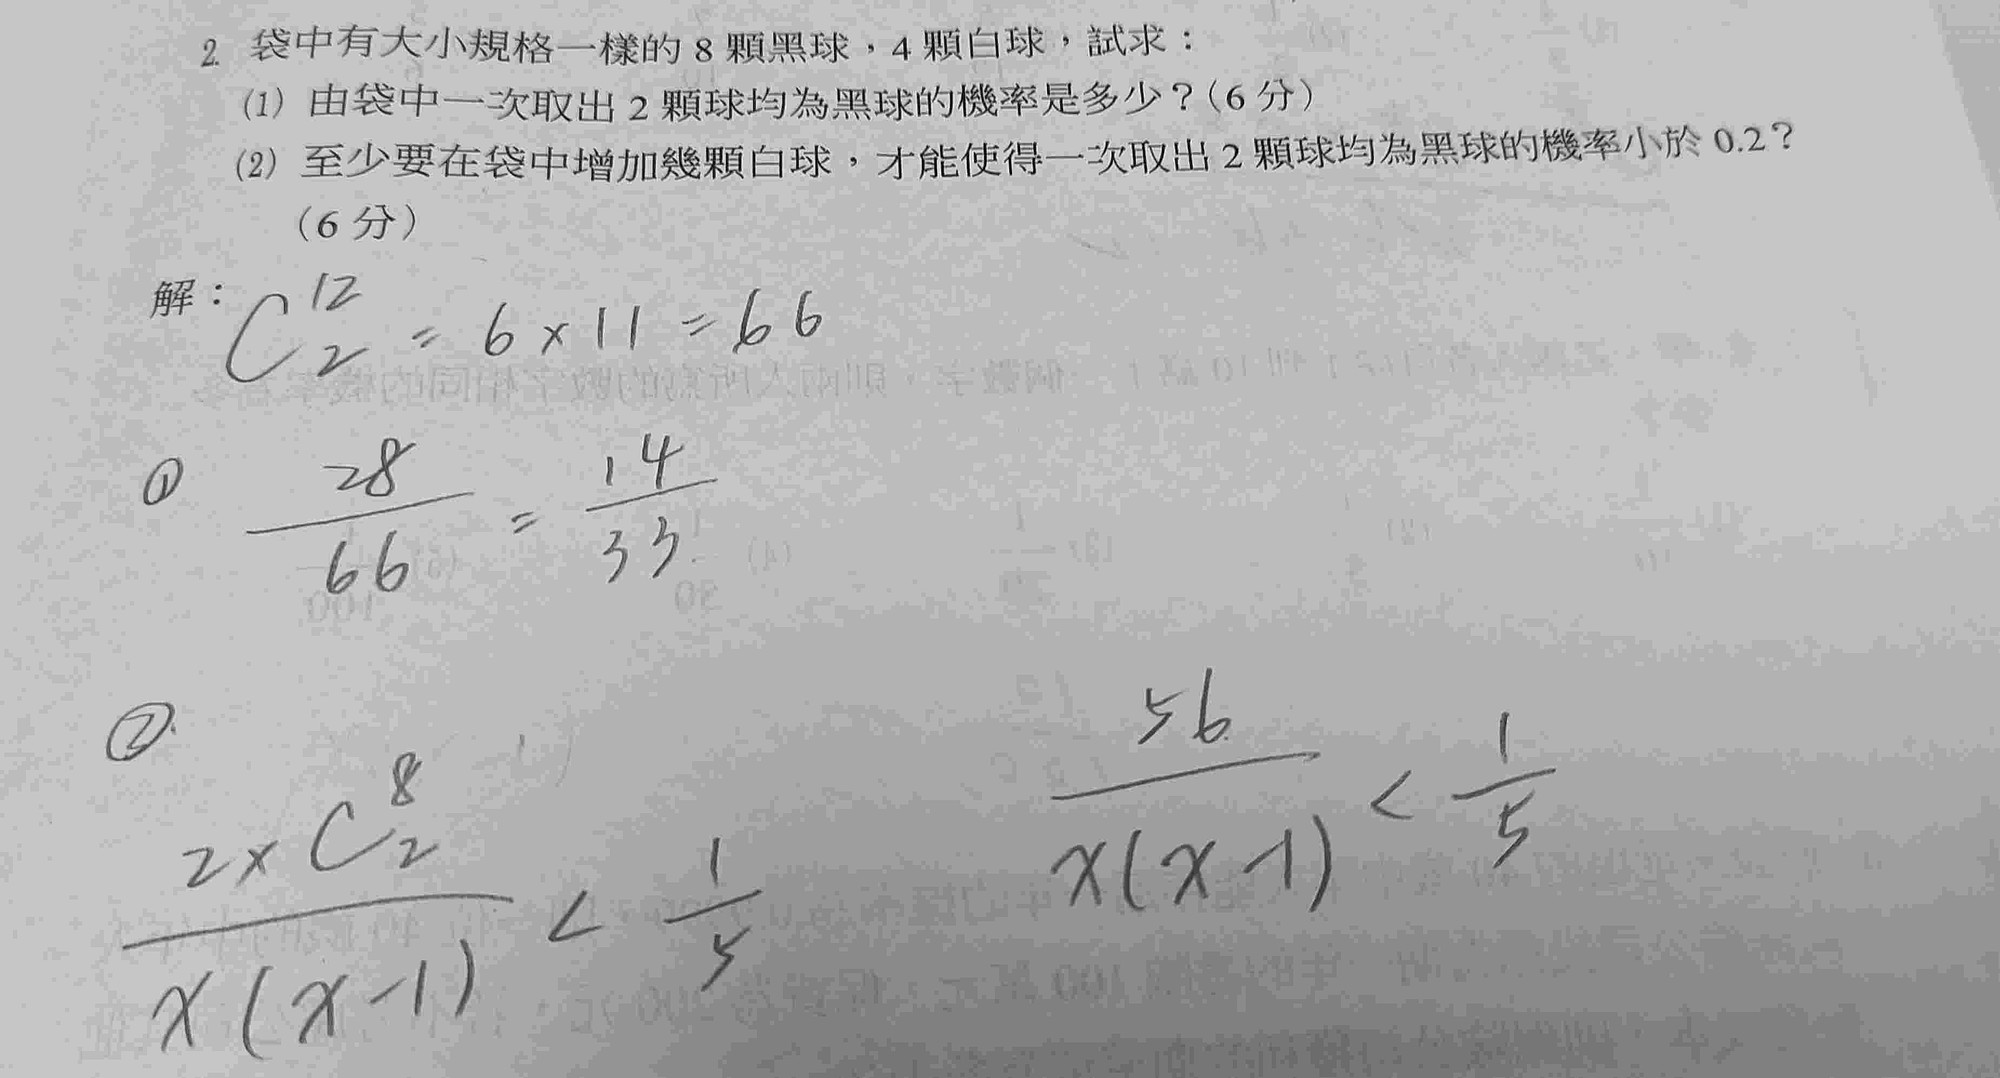 2. 袋中有大小規格一樣的 8 顆黑球，4 顆白球，試求：
(1) 由袋中一次取出 2 顆球均為黑球的機率是多少？(6 分)
(2) 至少要在袋中增加幾顆白球，才能使得一次取出 2 顆球均為黑球的機率小於 0.2？
(6 分)
解：C₂¹² = 6 × 11 = 66
① 28/66 = 14/33
② (2 × C₂⁸)/(x(x-1)) < 1/5
56/(x(x-1)) < 1/5